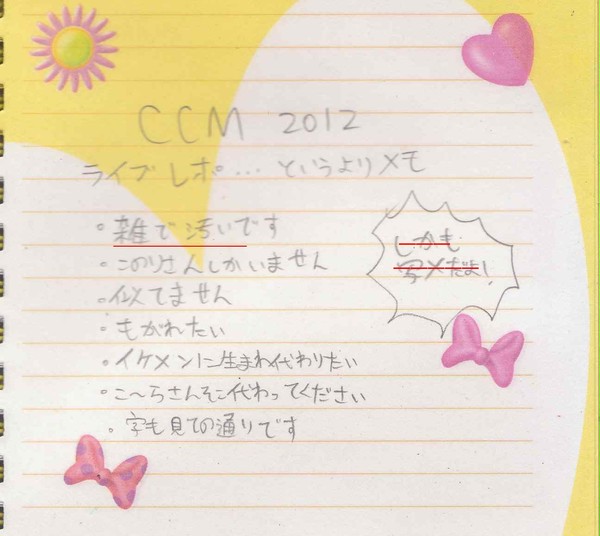 CCM 2012
ライブレポ… というよりメモ
・雑で汚いです
・このりさんしかいません
・似てません
・もがれたい
・イケメンに生まれ代わりたい
・こ〜らさんそこ代わってください
・字も見ての通りです
しかも
写メだよ!